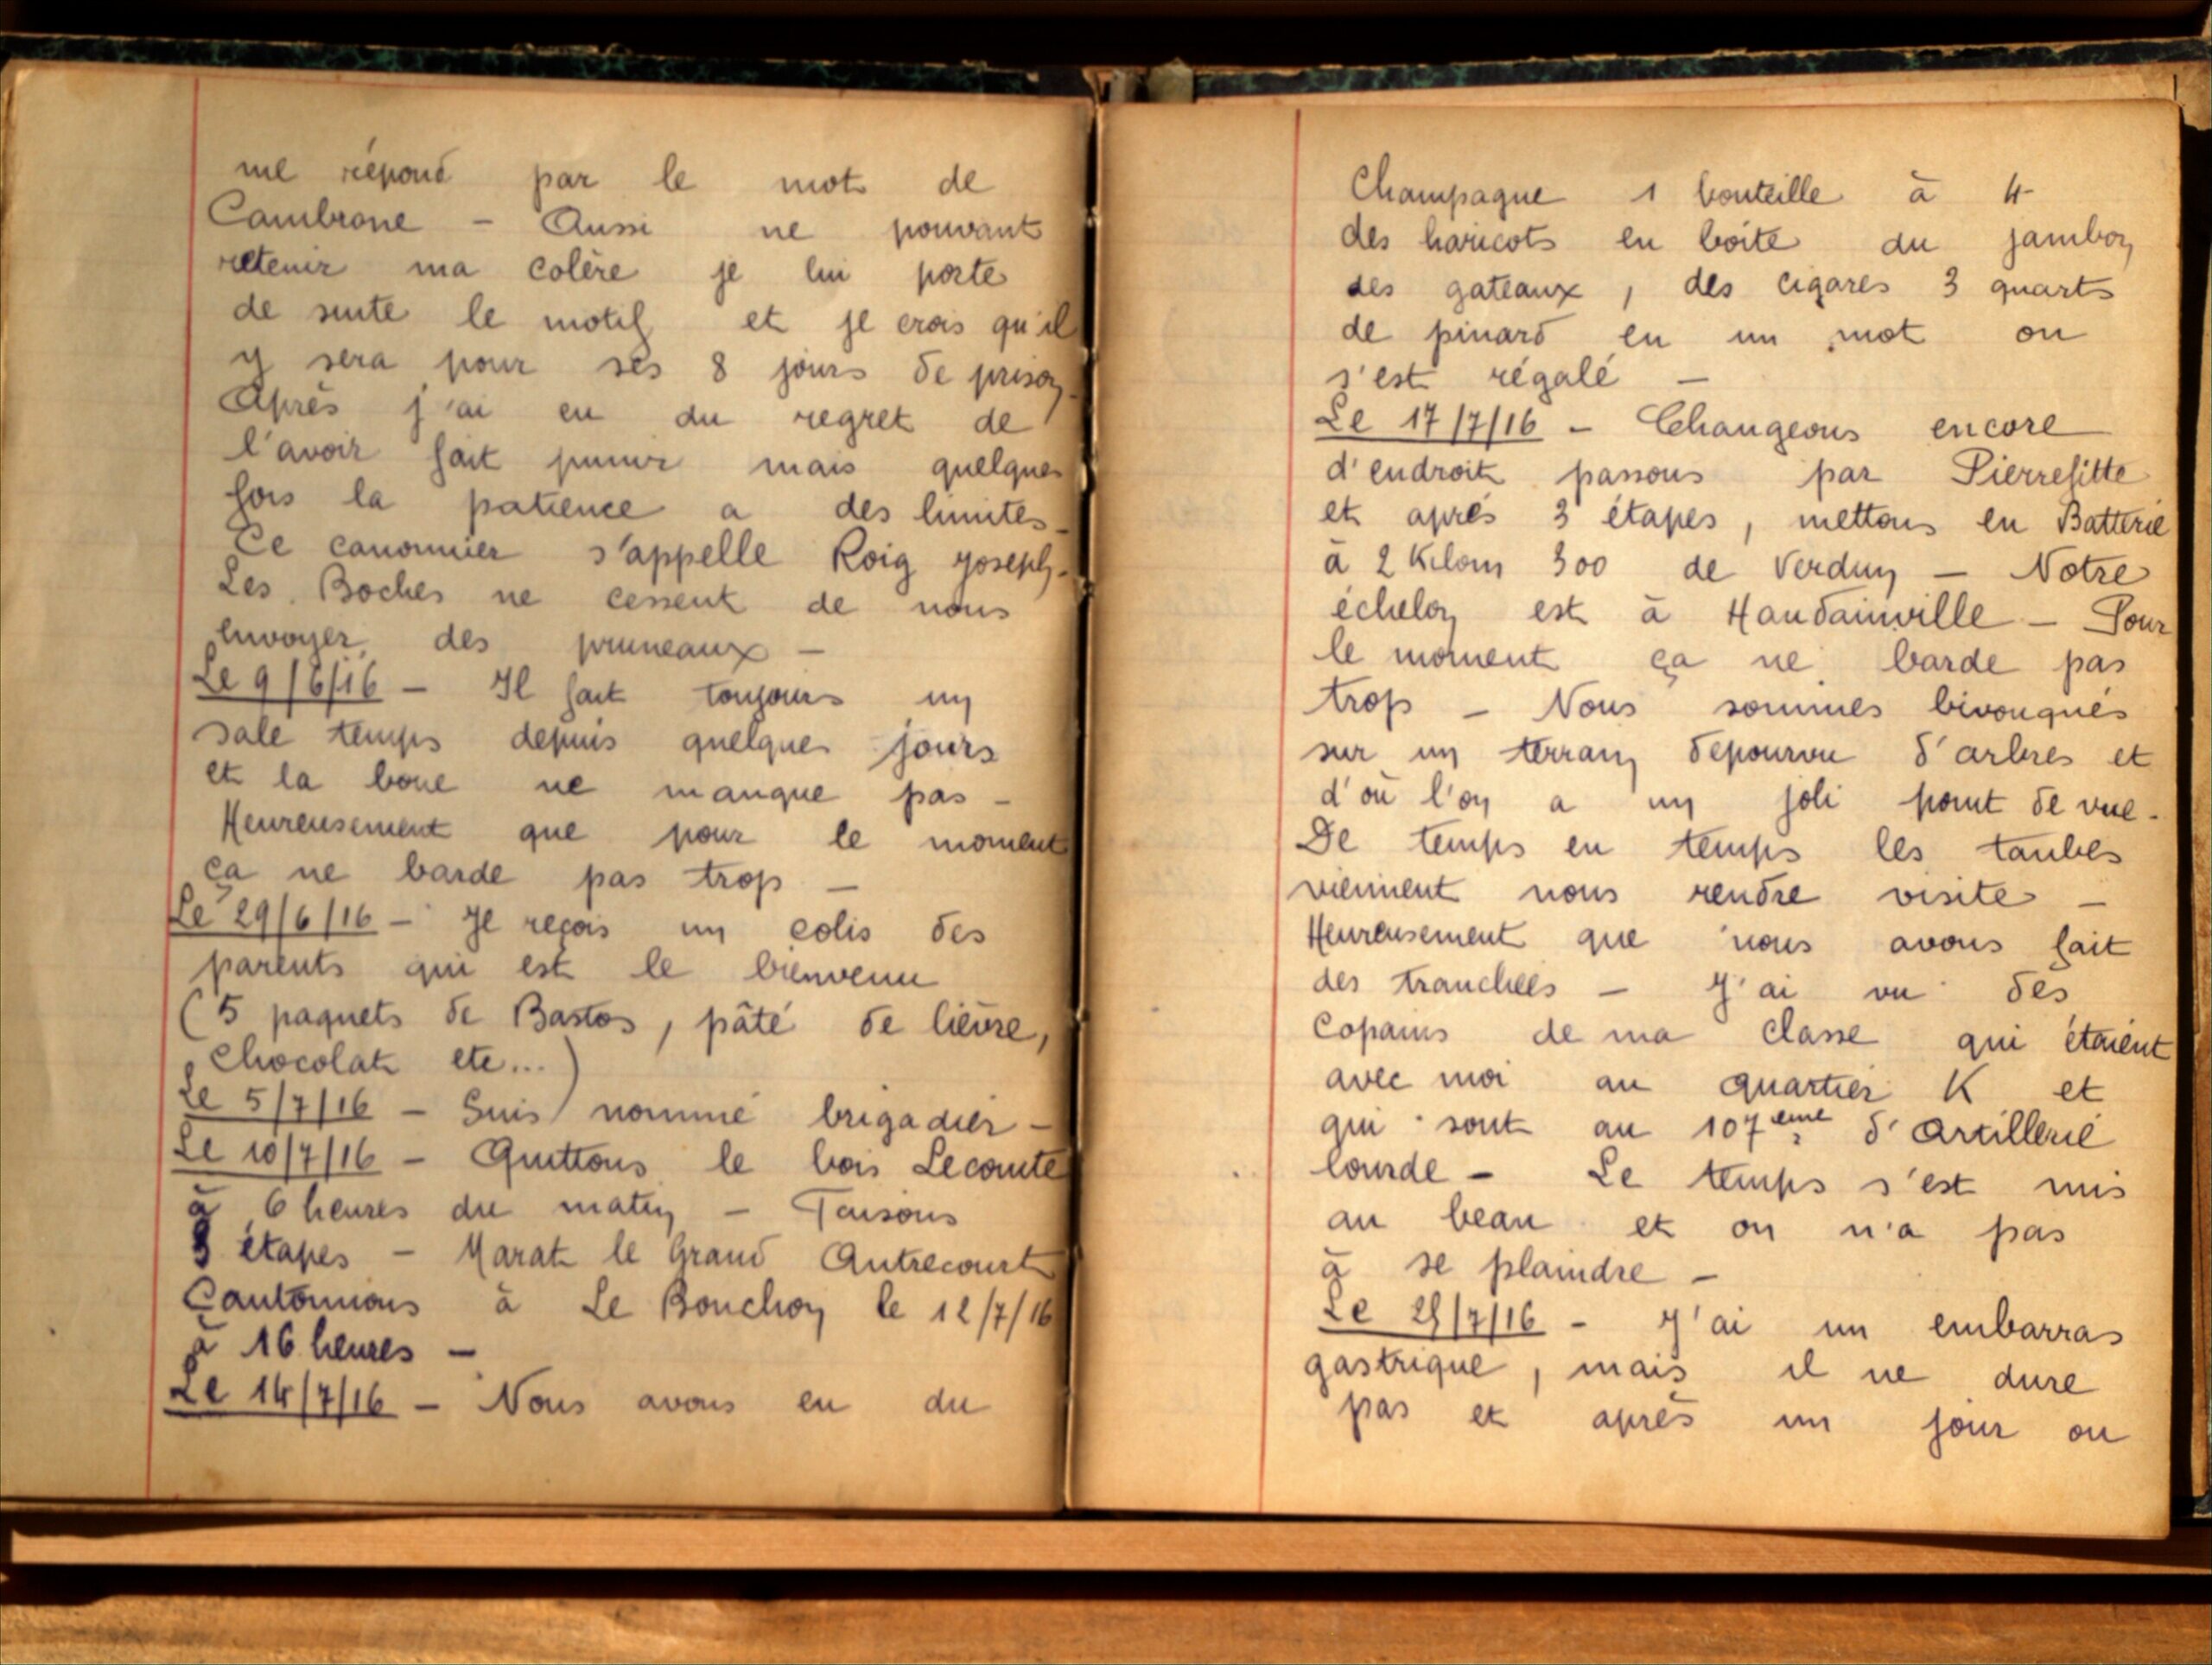 me répond par le mot de
Cambrone - Aussi ne pouvant
retenir ma colère je lui porte
de suite le motif et je crois qu'il
y sera pour ses 8 jours de prison -
Après j'ai eu du regret de
l'avoir fait punir mais quelques
fois la patience a des limites -
Ce canonnier s'appelle Roig Joseph -
Les Boches ne cessent de nous
envoyer des pruneaux -
Le 9/6/16 - Il fait toujours un
sale temps depuis quelques jours
et la boue ne manque pas -
Heureusement que pour le moment
ça ne barde pas trop -
Le 29/6/16 - Je reçois un colis des
parents qui est le bienvenu
(5 paquets de Bastos, pâté de lièvre,
chocolat etc...)
Le 5/7/16 - Suis nommé brigadier -
Le 10/7/16 - Quittons le bois Lecomte
à 6 heures du matin - Faisons
3 étapes - Marat le Grand Autrecourt
Cantonnons à Le Bouchon le 12/7/16
à 16 heures -
Le 14/7/16 - Nous avons eu du
Champagne 1 bouteille à 4
des haricots en boîte du jambon
des gateaux, des cigares 3 quarts
de pinard en un mot on
s'est régalé -
Le 17/7/16 - Changeons encore
d'endroit passons par Pierrefitte
et après 3 étapes, mettons en Batterie
à 2 Kilom 300 de Verdun - Notre
échelon est à Haudainville - Pour
le moment ça ne barde pas
trop - Nous sommes bivouqués
sur un terrain dépourvu d'arbres et
d'où l'on a un joli point de vue -
De temps en temps les taubes
viennent nous rendre visite -
Heureusement que nous avons fait
des tranchées - J'ai vu des
copains de ma classe qui étaient
avec moi au quartier K et
qui sont au 107eme d'Artillerie
lourde - Le temps s'est mis
au beau et on n'a pas
à se plaindre -
Le /7/16 - J'ai un embarras
gastrique, mais il ne dure
pas et après un jour ou